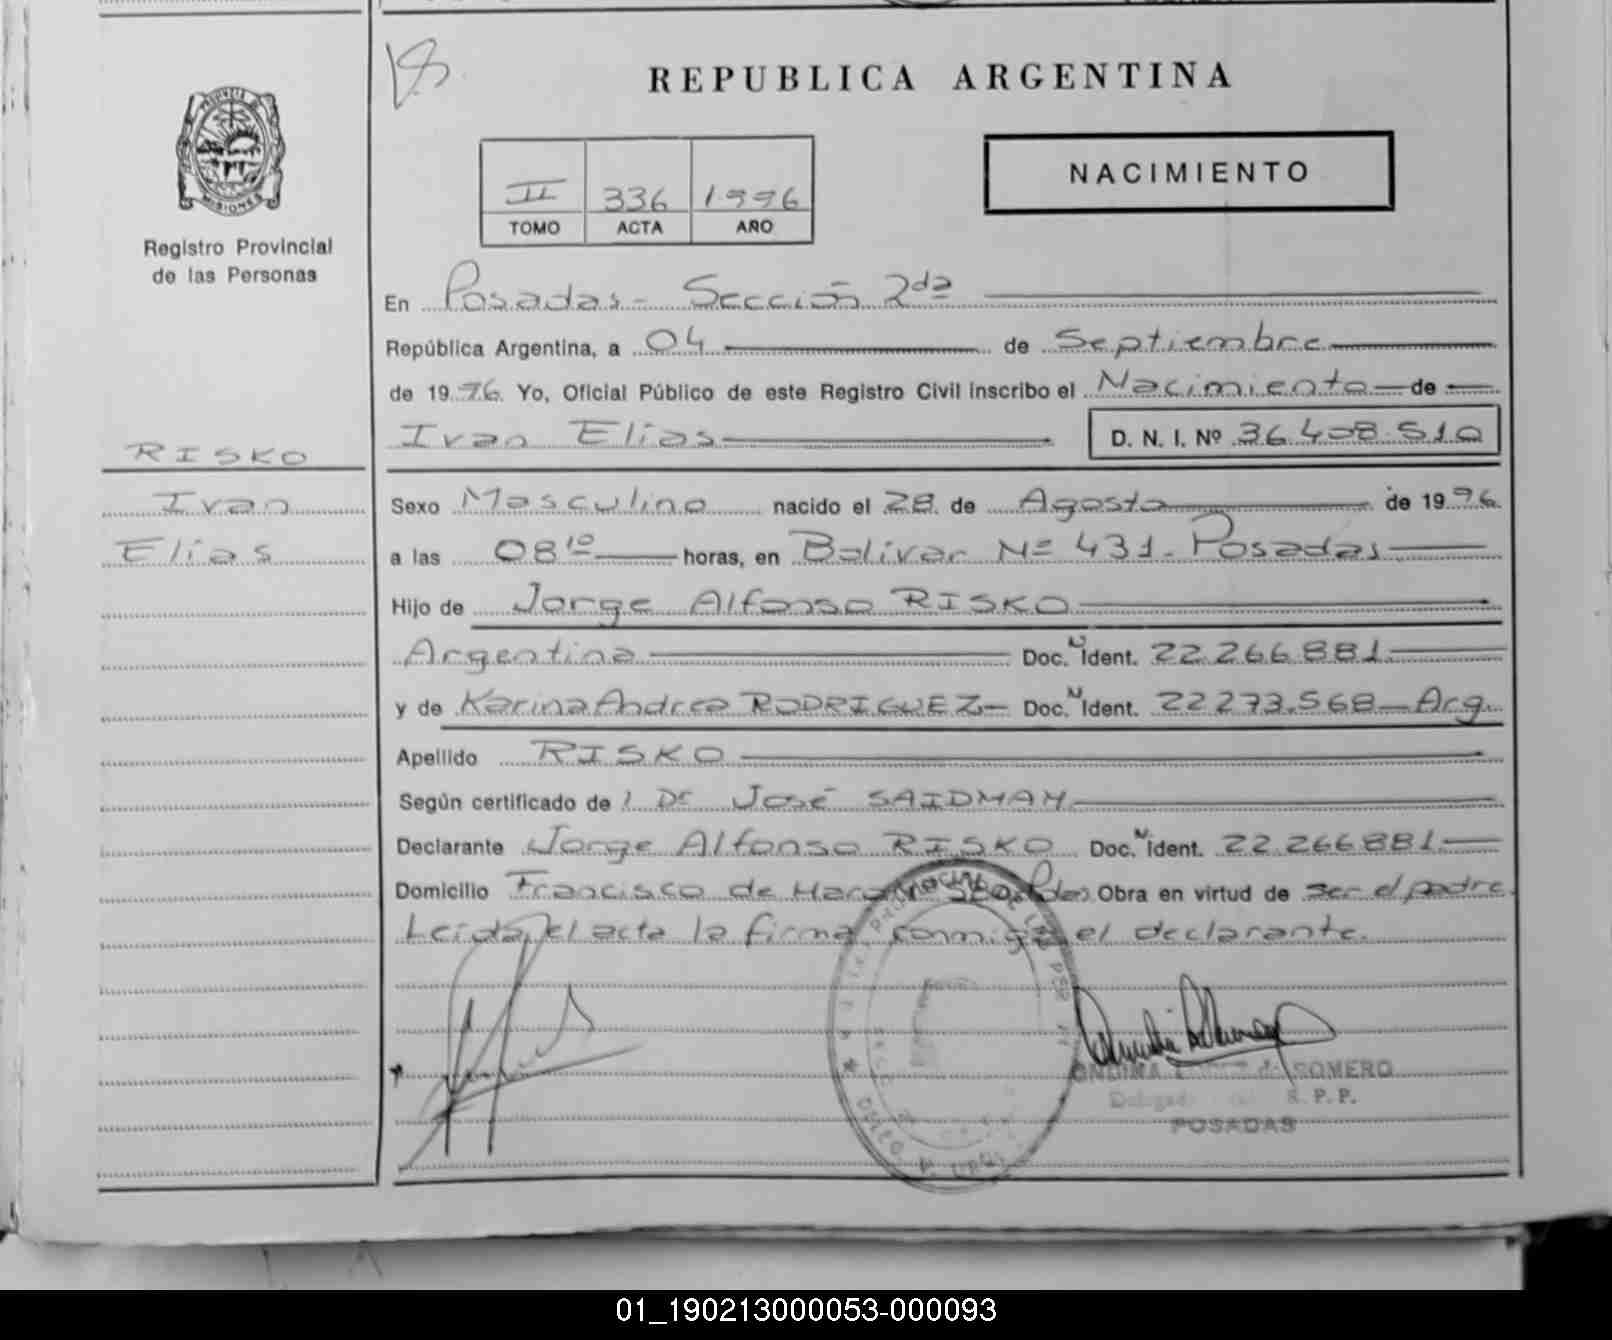 REPUBLICA ARGENTINA
PROVINCIA DE
MISIONES
Registro Provincial
de las Personas
II 336 1996
TOMO ACTA AÑO
NACIMIENTO
En Posadas - Sección 2da
República Argentina, a 04 de Septiembre
de 1996 Yo, Oficial Público de este Registro Civil inscribo el Nacimiento de
Ivan Elias D. N. I. Nº 36.408.510
RISKO
Ivan
Elias
Sexo Masculino nacido el 28 de Agosto de 1996
a las 08 10 horas, en Bolivar Nº 431 - Posadas
Hijo de Jorge Alfonso RISKO
Argentina Doc. N Ident. 22.266.881
y de Karina Andrea RODRIGUEZ Doc. N Ident. 22.273.568 - Arg.
Apellido RISKO
Según certificado de l Dr José SAIDMAN
Declarante Jorge Alfonso RISKO Doc. N Ident. 22.266.881
Domicilio Francisco de Haro Obra en virtud de ser el padre.
Leida el acta la firma conmigo el declarante.
ONDINA de ROMERO
R. P. P.
POSADAS
01_190213000053-000093